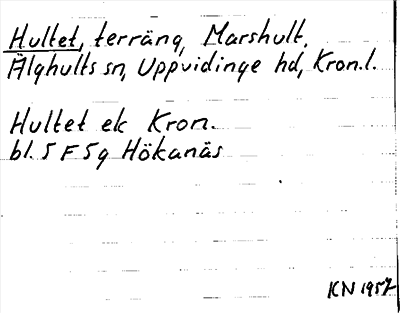 Hultet, terräng, Marshult,
Älghults sn, Uppvidinge hd, Kron.l.
Hultet ek Kron.
bl. 5 F 5g Hökanäs
KN 1957